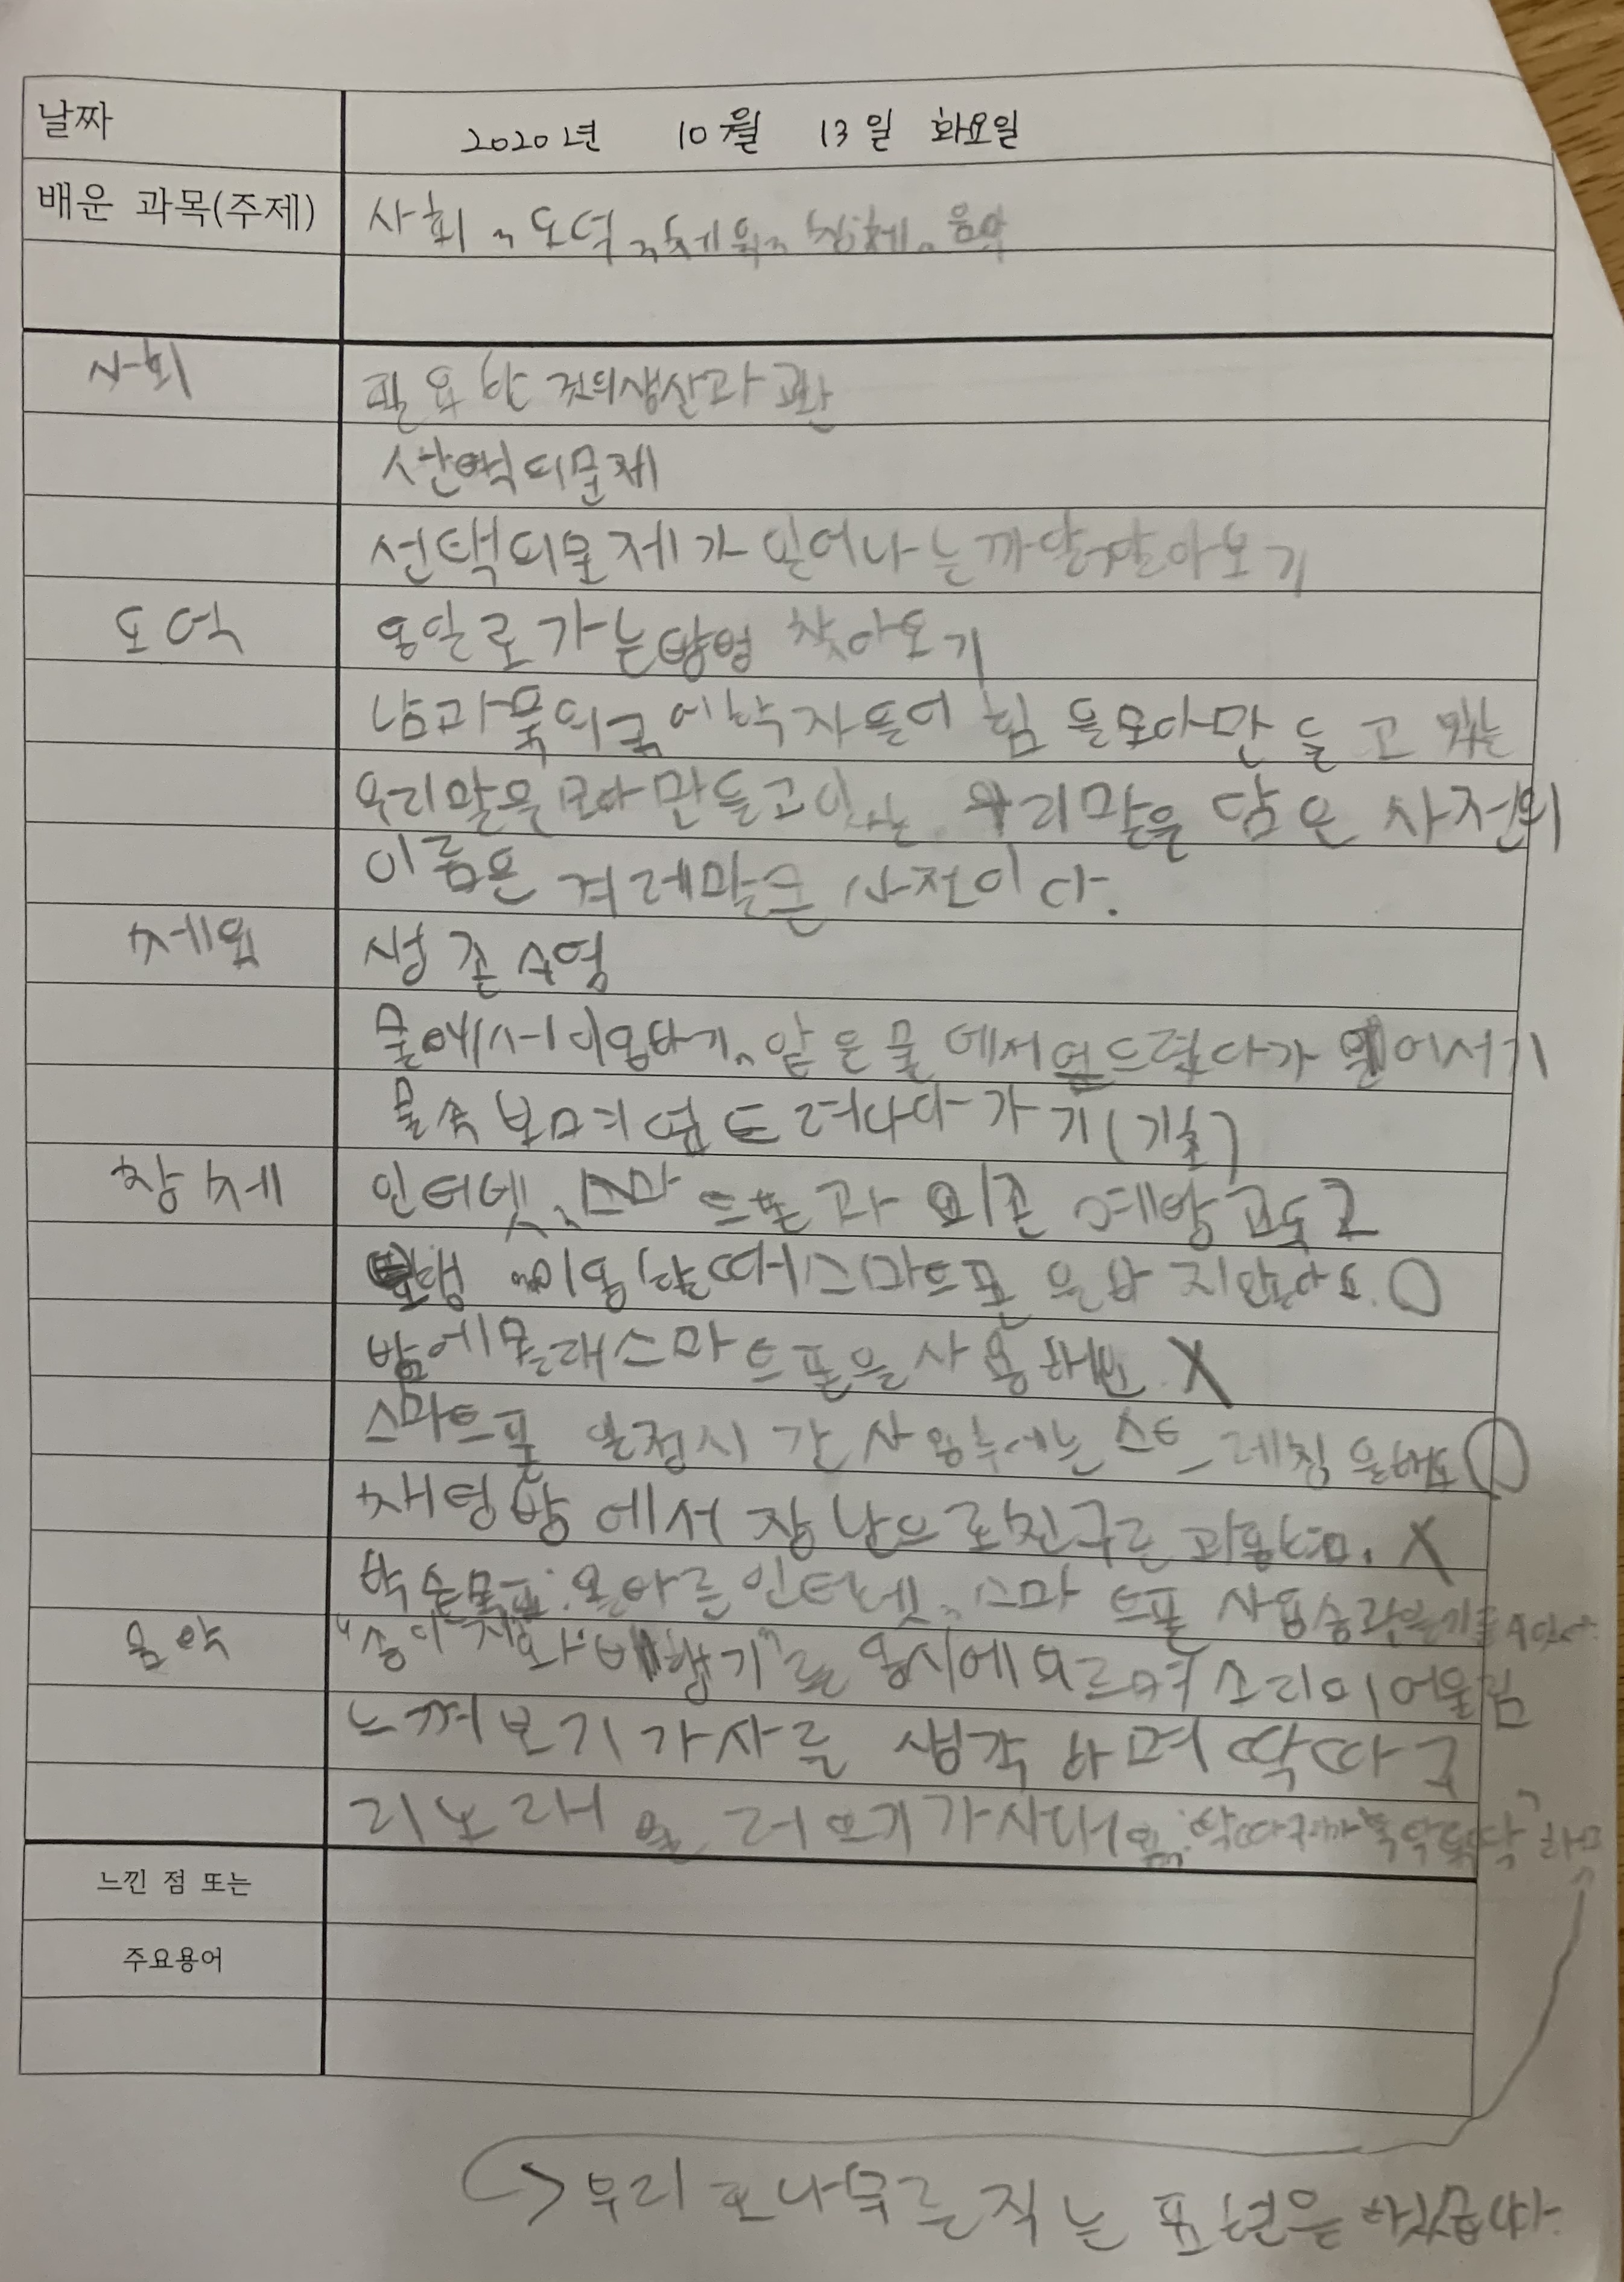 날짜 2020년 10월 13일 화요일
배운 과목(주제) 사회, 도덕, 체육, 창체, 음악
사회 필요한 것의생산과 교환
선택의문제
선택의문제가 일어나는까닭알아보기
도덕 통일로가는방법 찾아보기
남과북의국어학자들이 힘을모아만들고 있는
우리말을모아만들고있는 우리말을 담은 사전의
이름은 겨레말큰 사전이다.
체육 생존수영
물에서이동하기, 얕은물에서엎드렸다가 일어서기
물속보며엎드려나아가기(기초)
창체 인터넷, 스마트폰과의존예방교육2
이동할때스마트폰을보지않아요. O
밤에몰래스마트폰을사용해요. X
스마트폰 일정시간사용후에는스트레칭을해요 O
채팅방에서장난으로친구를괴롭혀요. X
학습목표:올바른인터넷, 스마트폰 사용습관을기를수있다.
음악 "송이 와비행기"를동시에부르며소리의어울림
느껴보기가사를 생각하며딱따구
리노래 불러보기가사내용:
느낀 점 또는
주요용어
→우리 나무를 는 표현을하였습니다.